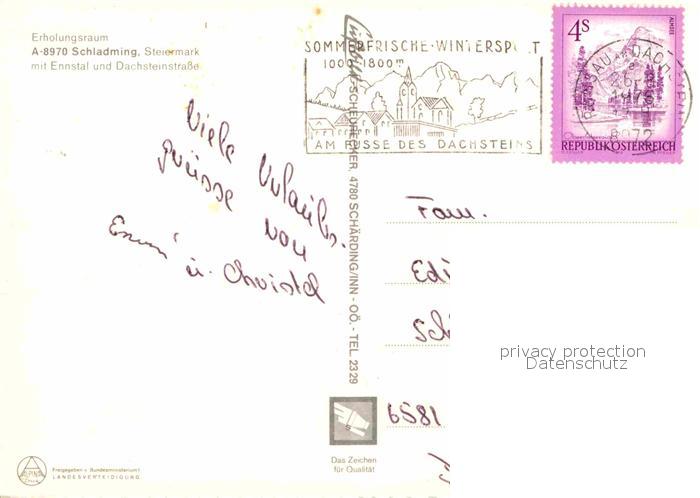 Erholungsraum
A-8970 Schladming, Steiermark
mit Ennstal und Dachsteinstraße
SOMMERFRISCHE·WINTERSPORT
1000-1800m
AM FUSSE DES DACHSTEINS
4S
ALMSEE
REPUBLIK ÖSTERREICH
RAMSAU AM DACHSTEIN
1975
8972
Viele Urlaubs-
grüsse von
u. Christel
Fam.
Edi
Sch
6581
SCHEDRECKER, 4780 SCHÄRDING/INN - OÖ. - TEL. 2329
Das Zeichen
für Qualität
ALPINA
Freigegeben v. Bundesministerium f.
LANDESVERTEIDIGUNG
privacy protection
Datenschutz